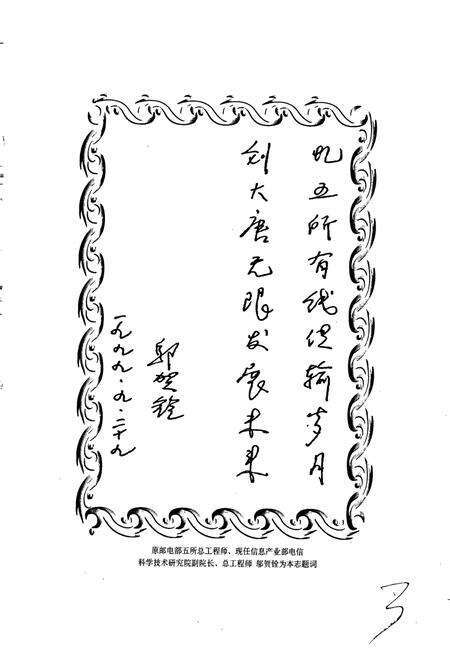 忆五所有线传输岁月
创大唐无限发展未来
邬贺铨
一九九九·九·二十九
原邮电部五所总工程师、现任信息产业部电信
科学技术研究院副院长、总工程师 邬贺铨为本志题词